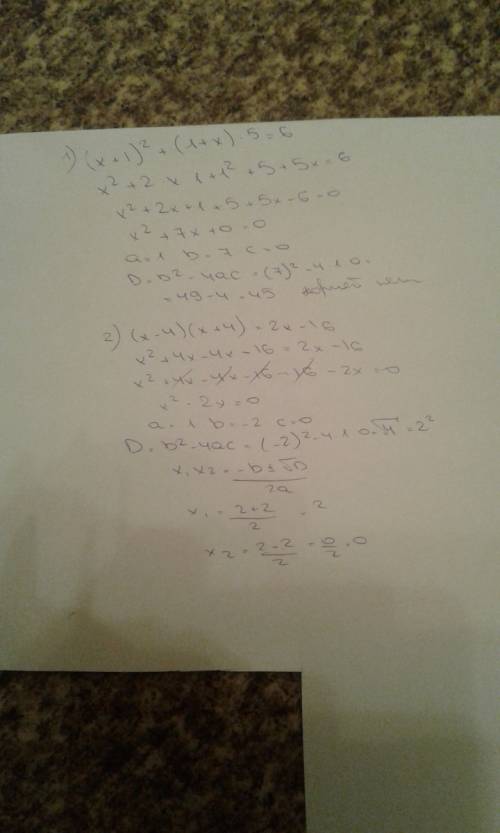 1) (x+1)² + (1+x)·5=6
x²+2·x·1+1²+5+5x=6
x²+2x+1+5+5x-6=0
x²+7x+0=0
a=1 b=7 c=0
D=b²-4ac=(7)²-4·1·0=
=49-4=45 корней нет
2) (x-4)(x+4)=2x-16
x²+4x-4x-16=2x-16
x²+4x-4x-16-16-2x=0
x²-2x=0
a=1 b=-2 c=0
D=b²-4ac=(-2)²-4·1·0=√4=2²
x₁x₂=-b±√D/2a
x₁=2+2/2=2
x₂=2-2/2=0/2=0